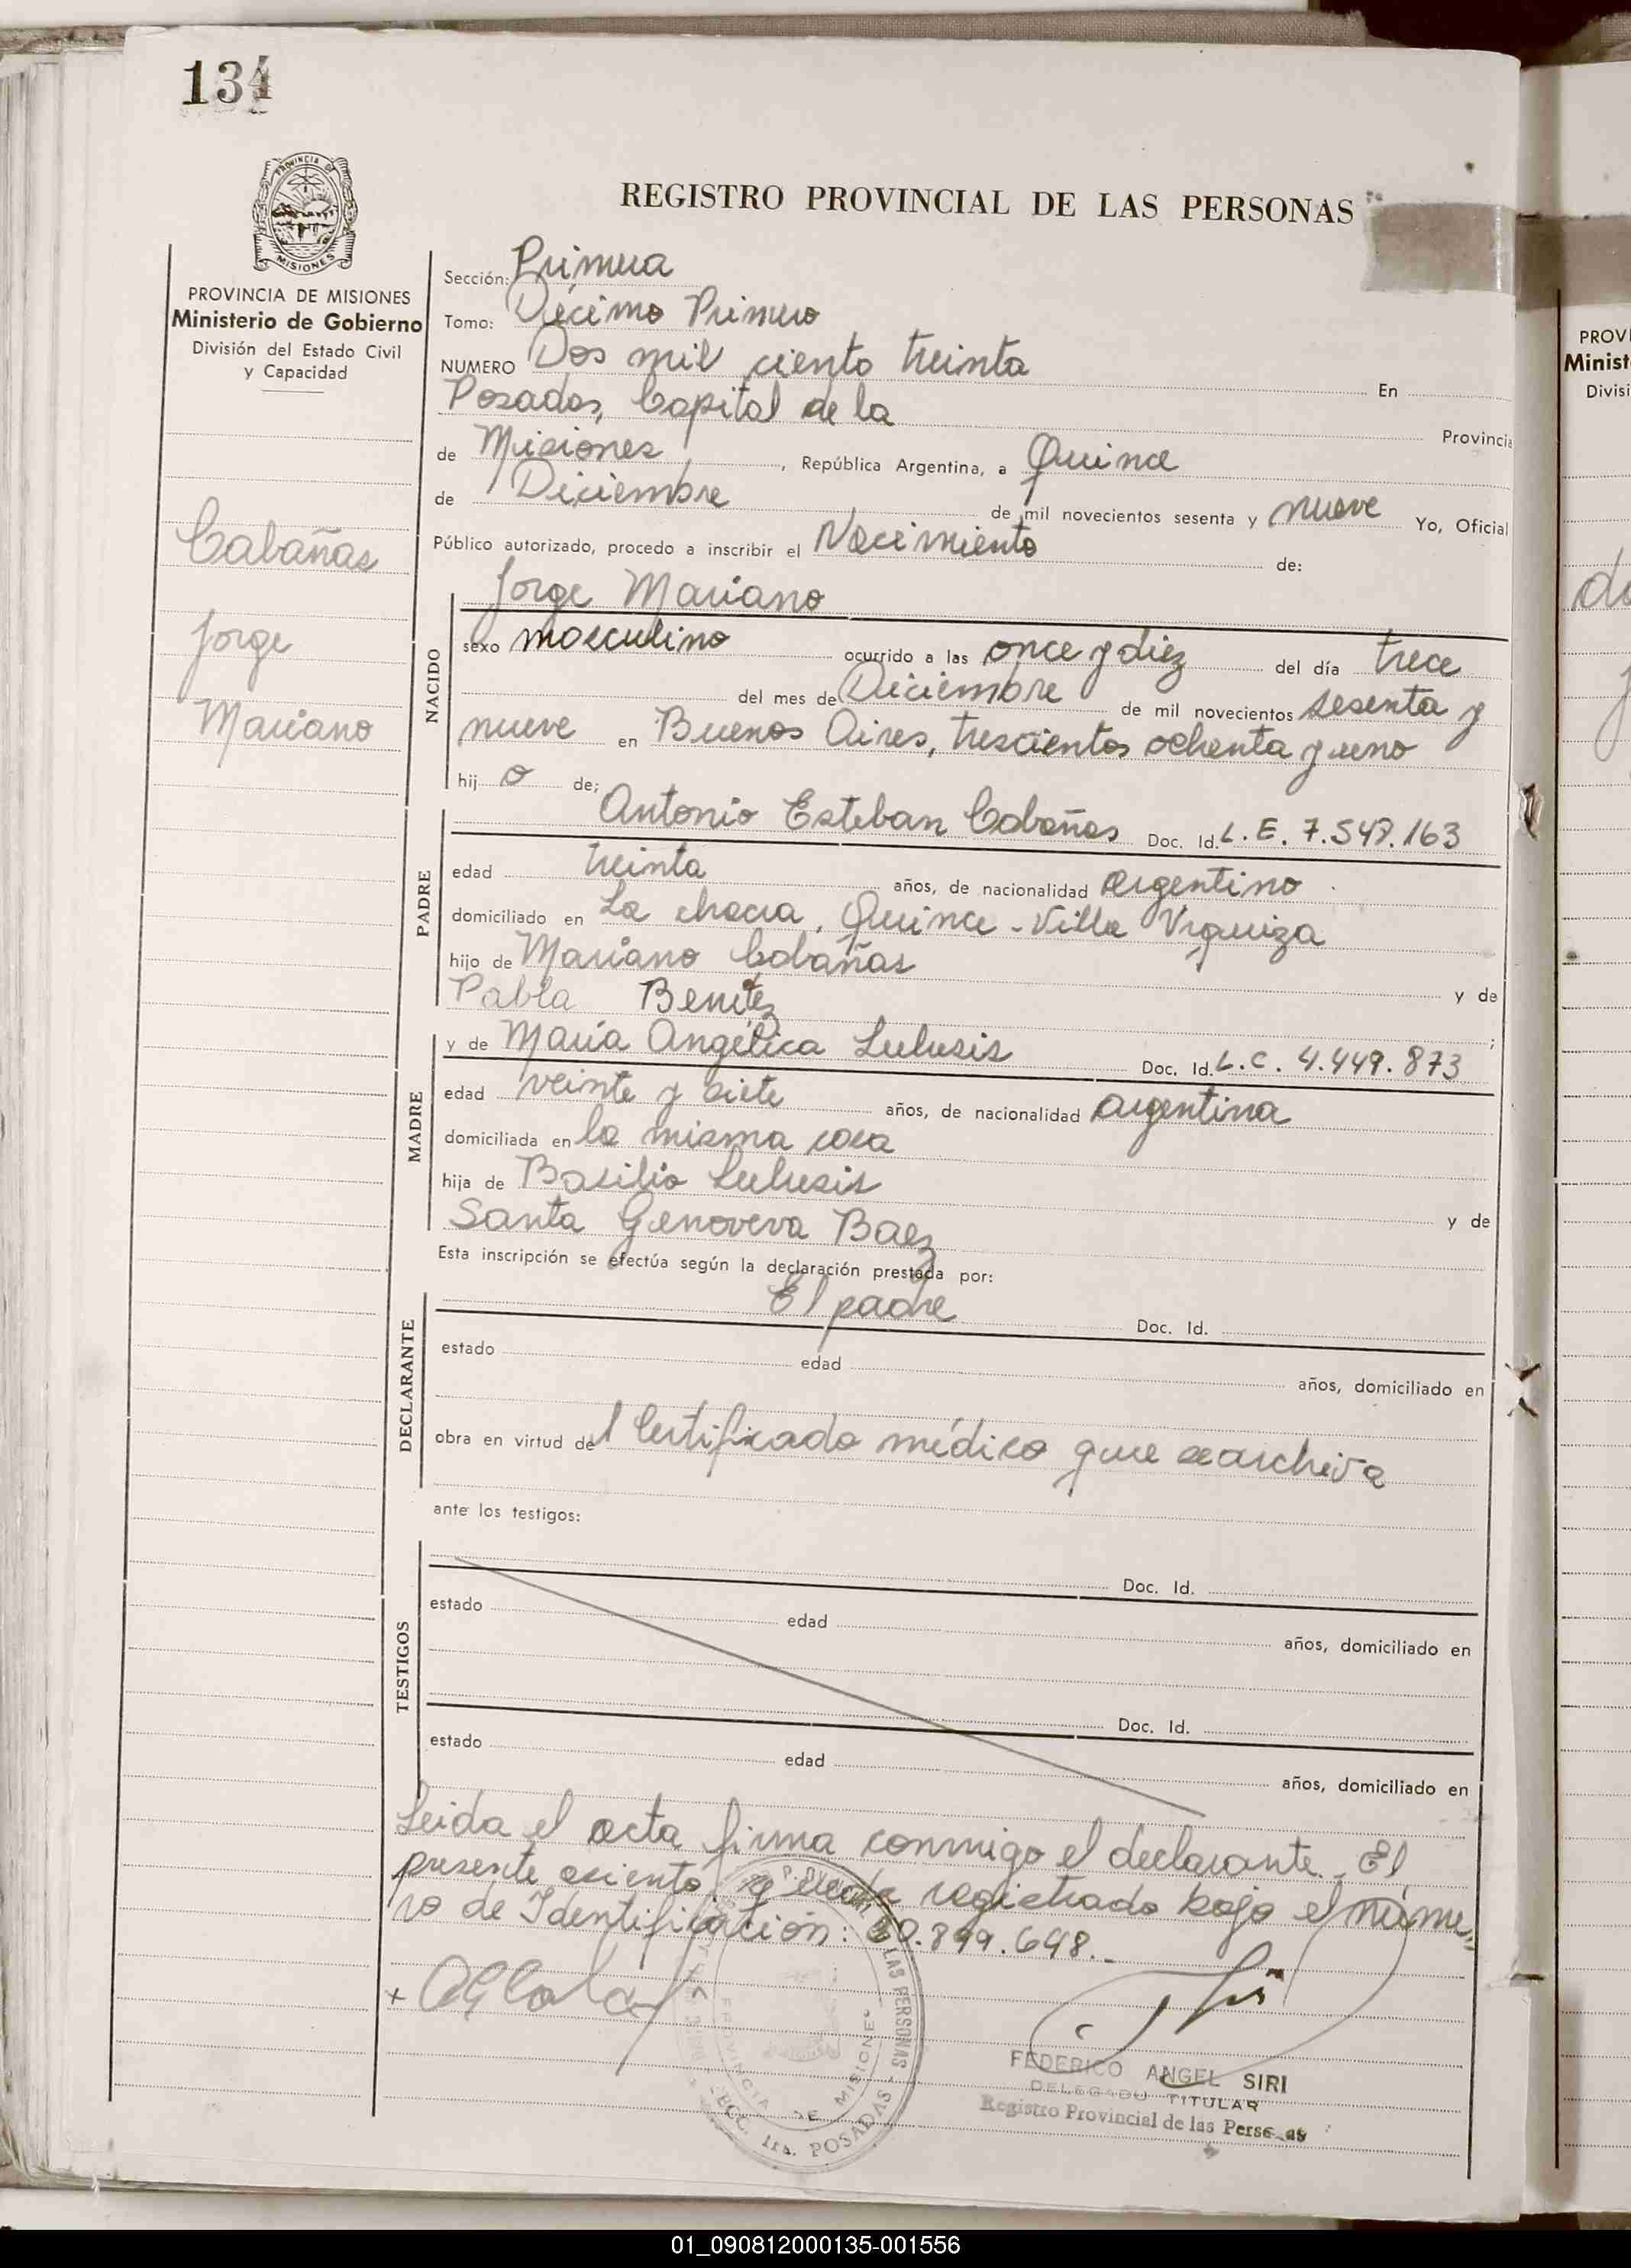 134
REGISTRO PROVINCIAL DE LAS PERSONAS
PROVINCIA DE MISIONES
PROVINCIA DE MISIONES
Ministerio de Gobierno
División del Estado Civil
y Capacidad
Cabañas
Jorge
Mariano
Sección: Primera
Tomo: Décimo Primero
NUMERO Dos mil ciento treinta En
Posadas, Capital de la Provincia
de Misiones, República Argentina, a Quince
de Diciembre de mil novecientos sesenta y nueve Yo, Oficial
Público autorizado, procedo a inscribir el Nacimiento de:
Jorge Mariano
NACIDO
sexo masculino ocurrido a las once y diez del día trece
del mes de Diciembre de mil novecientos sesenta y
nueve en Buenos Aires, trescientos ochenta y uno
hijo de:
Antonio Esteban Cabañas Doc. Id. L.E. 7.547.163
PADRE
edad treinta años, de nacionalidad argentino
domiciliado en La chacra, Quince - Villa Urquiza
hijo de Mariano Cabañas y de
Pabla Benitez;
MADRE
y de María Angélica Lulusis Doc. Id. L.C. 4.449.873
edad veinte y siete años, de nacionalidad argentina
domiciliada en la misma casa
hija de Basilio Lulusis y de
Santa Genoveva Baez
Esta inscripción se efectúa según la declaración prestada por:
DECLARANTE
El padre Doc. Id.
estado edad años, domiciliado en
obra en virtud del Certificado médico que se archiva
ante los testigos:
TESTIGOS
Doc. Id.
estado edad años, domiciliado en
Doc. Id.
estado edad años, domiciliado en
Leida el acta firma conmigo el declarante. El
presente asiento queda registrado bajo el núme
ro de Identificación: 20.899.698.
LAS PERSONAS
PROVINCIA DE MISIONES
SECC. 1ra. POSADAS
FEDERICO ANGEL SIRI
DELEGADO TITULAR
Registro Provincial de las Personas
PROVI
Minist
Divisi
01_090812000135-001556